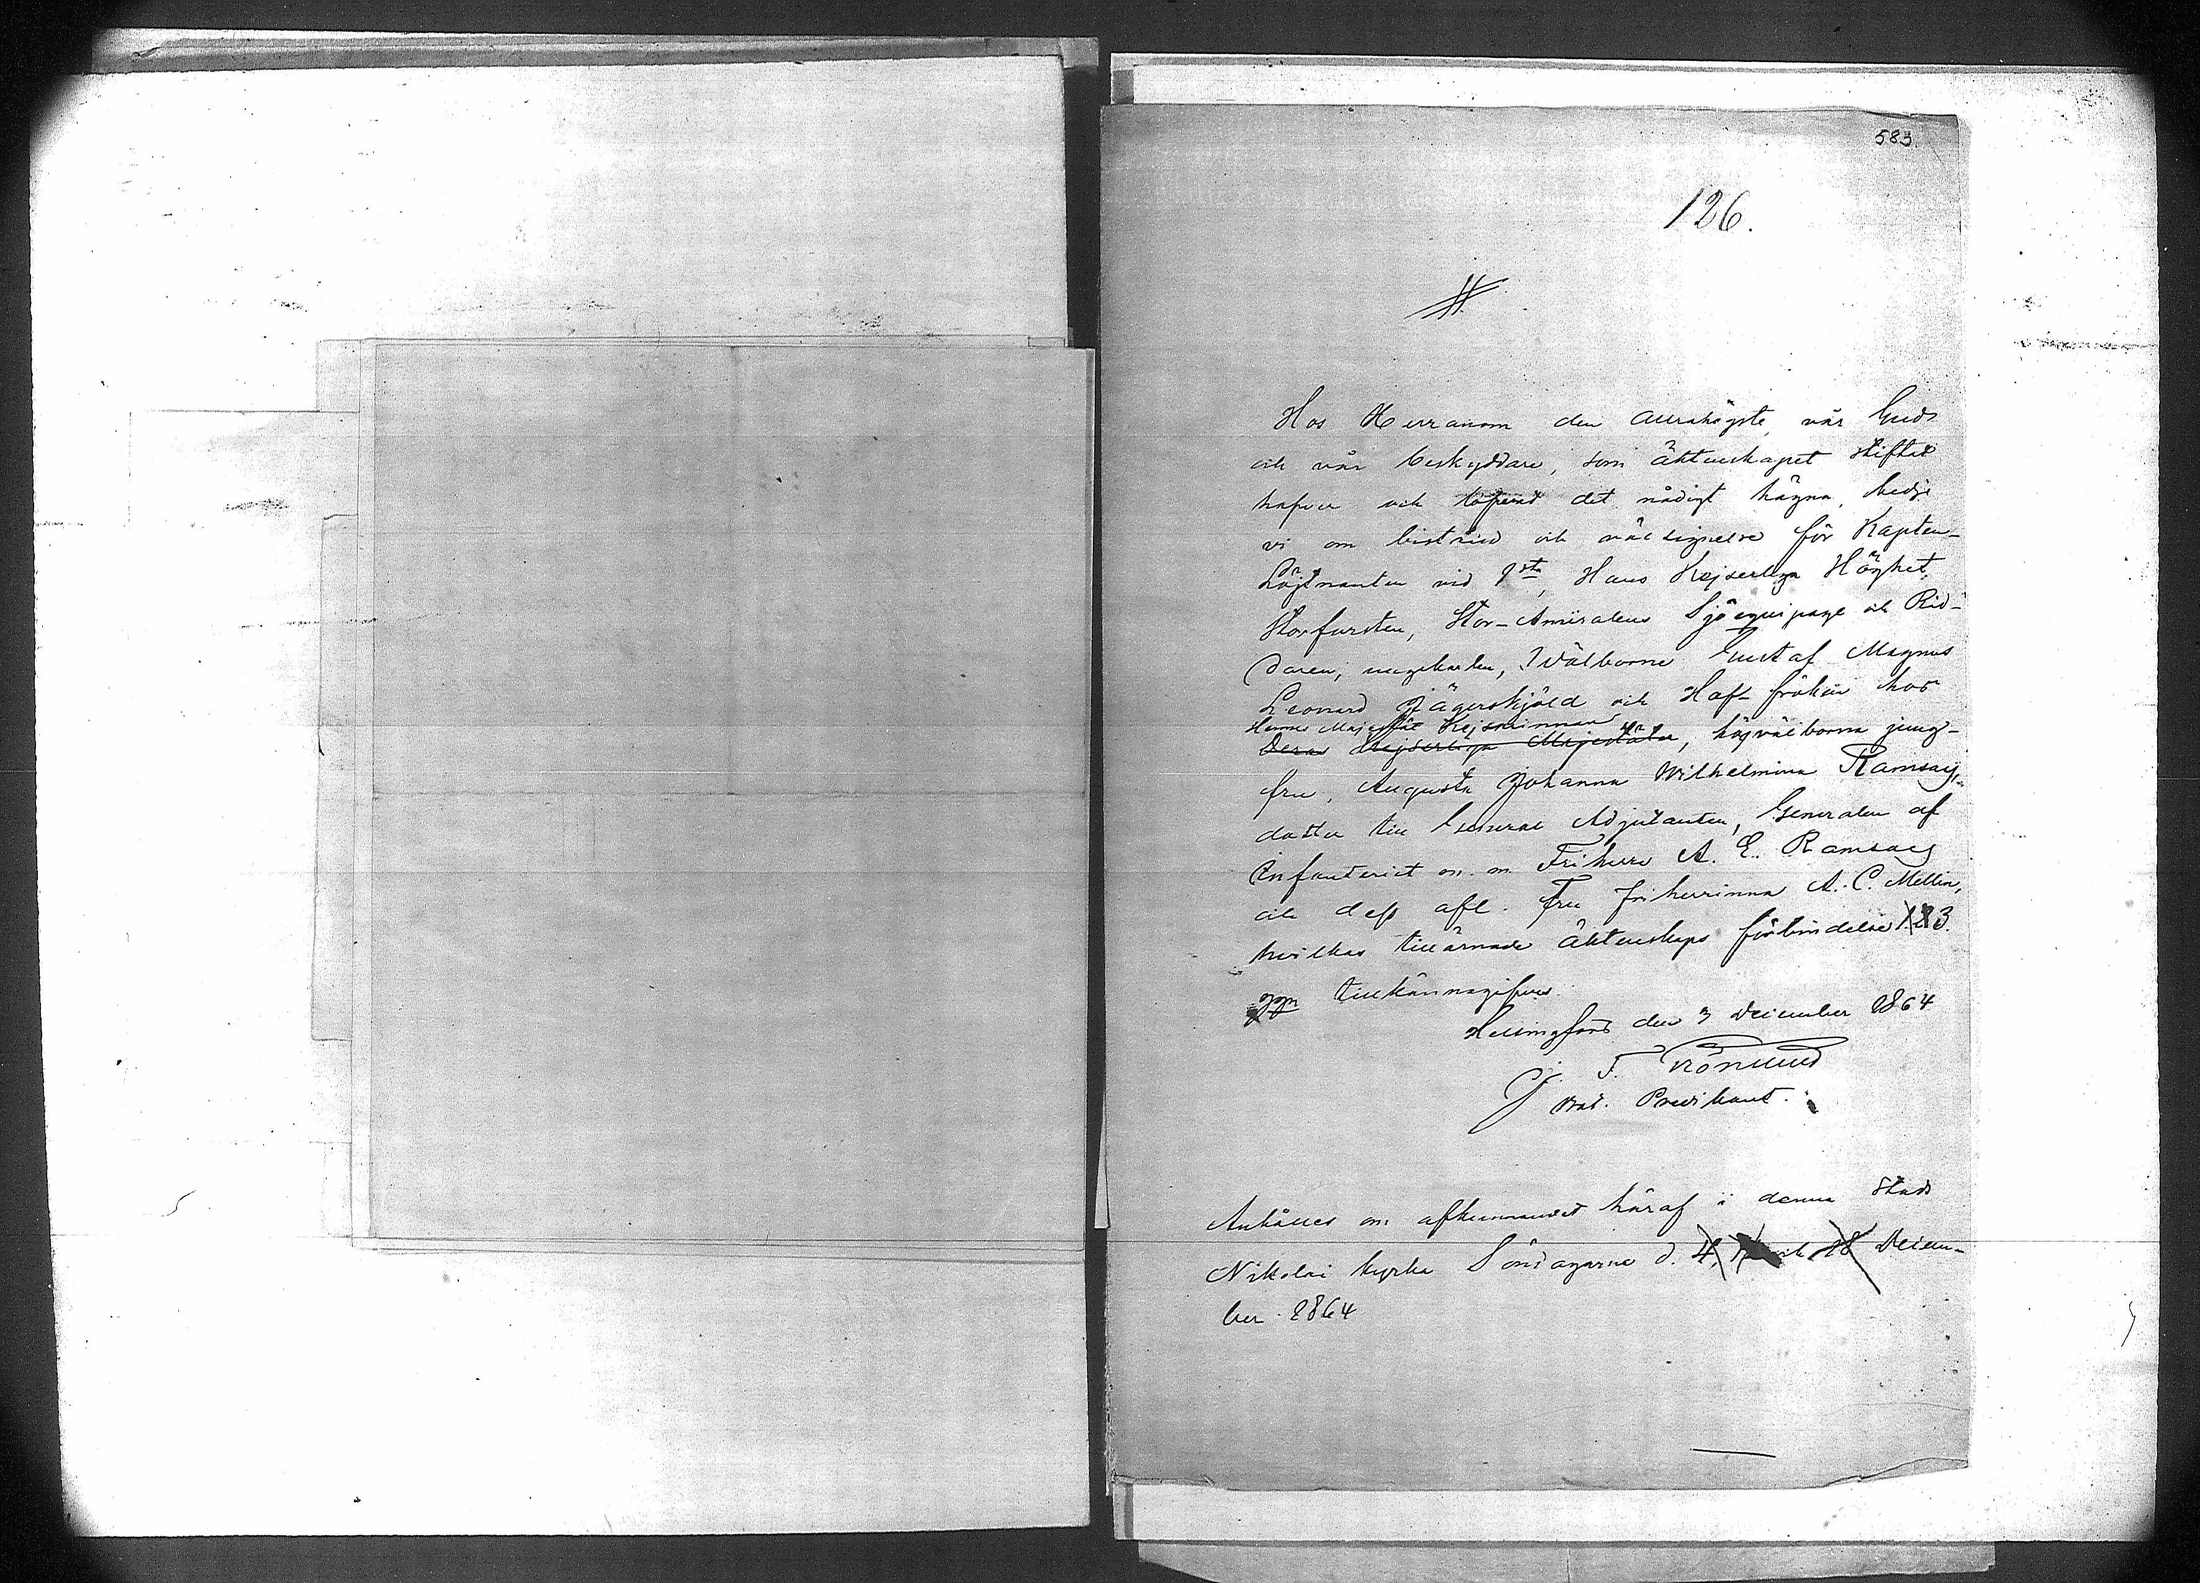 583.
126.
Hos Herranom den allrahögste, vår Gud
och vår beskyddare, som äktenskapet stiftat
hafver och det nådigt hägna, bedje
vi om bistånd och välsignelse för Kapten-
Löjtnanten vid 1sta, Hans Kejserliga Höghet,
Storfursten, Stor-Amiralens Sjöequipage och Rid-
daren, ungkarlen, Välborne Gustaf Magnus
Leonard Jägerskjöld och Hof-fröken hos
Hennes Majestät Kejsarinnan
Deras Kejserliga Majestäter, högvälborna jung-
fru, Augusta Johanna Wilhelmina Ramsay,
dotter till General Adjutanten, Generalen af
Infanteriet m. m. Friherre A. E. Ramsay
och dess afl. Fru friherrinna A. C. Mellin,
hvilkas tillärnade äktenskaps förbindelse 1. 2. 3.
ggn tillkännagifves.
Helsingfors den 3 December 1864
J. F. Rönlund
Bat. Predikant.
Anhålles om afkunnandet häraf i denna Stads
Nikolai kyrka Söndagarne d. 4, och 18 Decem-
ber 1864